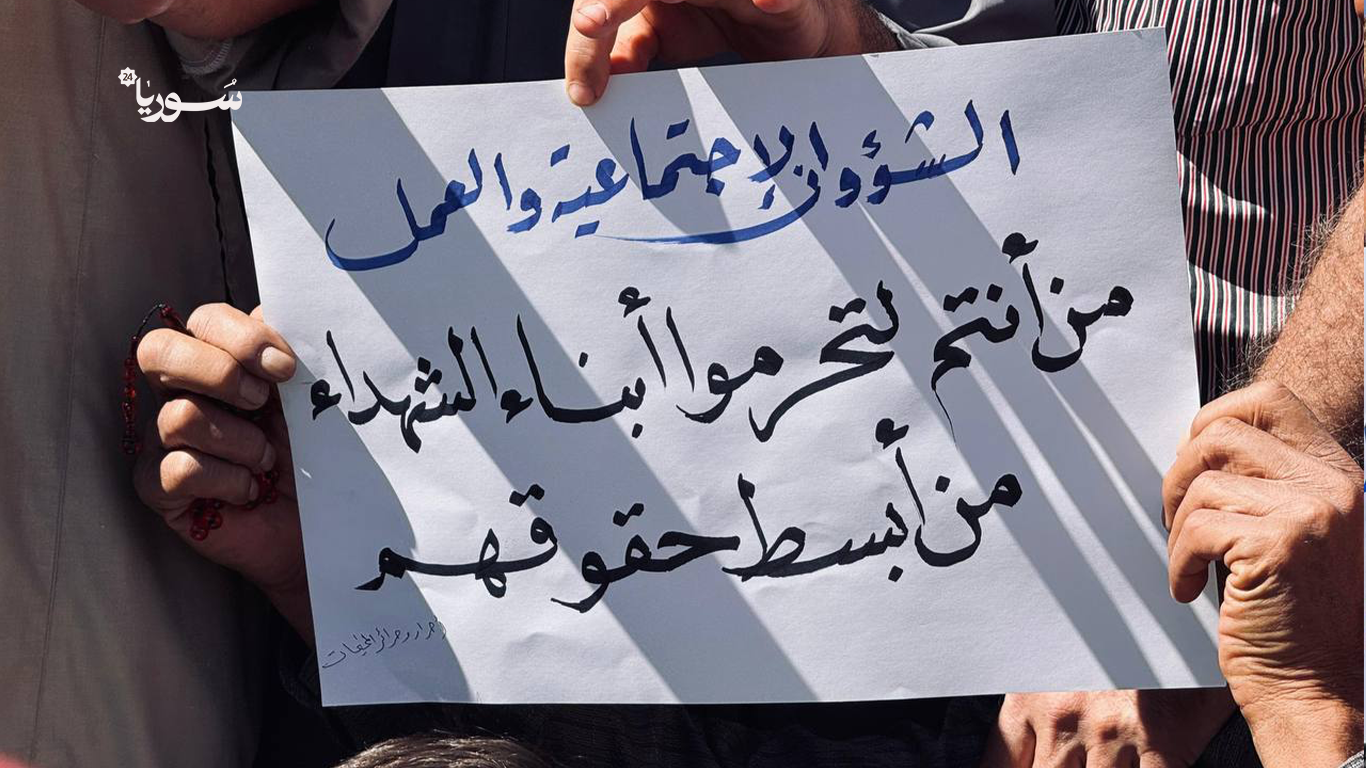 سُوريا
24
الشؤون الإجتماعية والعمل
من أنتم لتحرموا أبناء الشهداء
من أبسط حقوقهم
أحرار وحرائر المخيمات